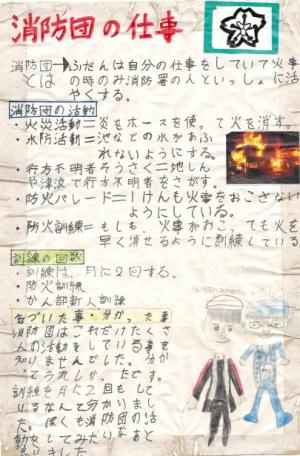 消防団の仕事
消防団→ふだんは自分の仕事をしていて火事
とは の時のみ消防署の人といっしょに活
やくする。
消防団の活動
・火災活動=炎をホースを使って火を消す。
・水防活動=池などの水があふ
れないようにする。
・行方不明者そうさく=地しん
や津波で行方不明者をさがす。
・防火パレード=1けんも火事をおこさない
ようにしている。
・防火訓練=もしも、火事がおこっても火を
早く消せるように訓練している
訓練の回数
・訓練は、月に2回する。
・防火訓練
・かん部新人訓練
気づいた事・分かった事
消防団はこれだけたくさ
んの活動をしている事を
知りませんでした。分かっ
てうれしかったです。
訓練を月に2回もして
いるなんて分かりまし
た。ぼくも消防団の活
動をしてみたいなあと
思いました。